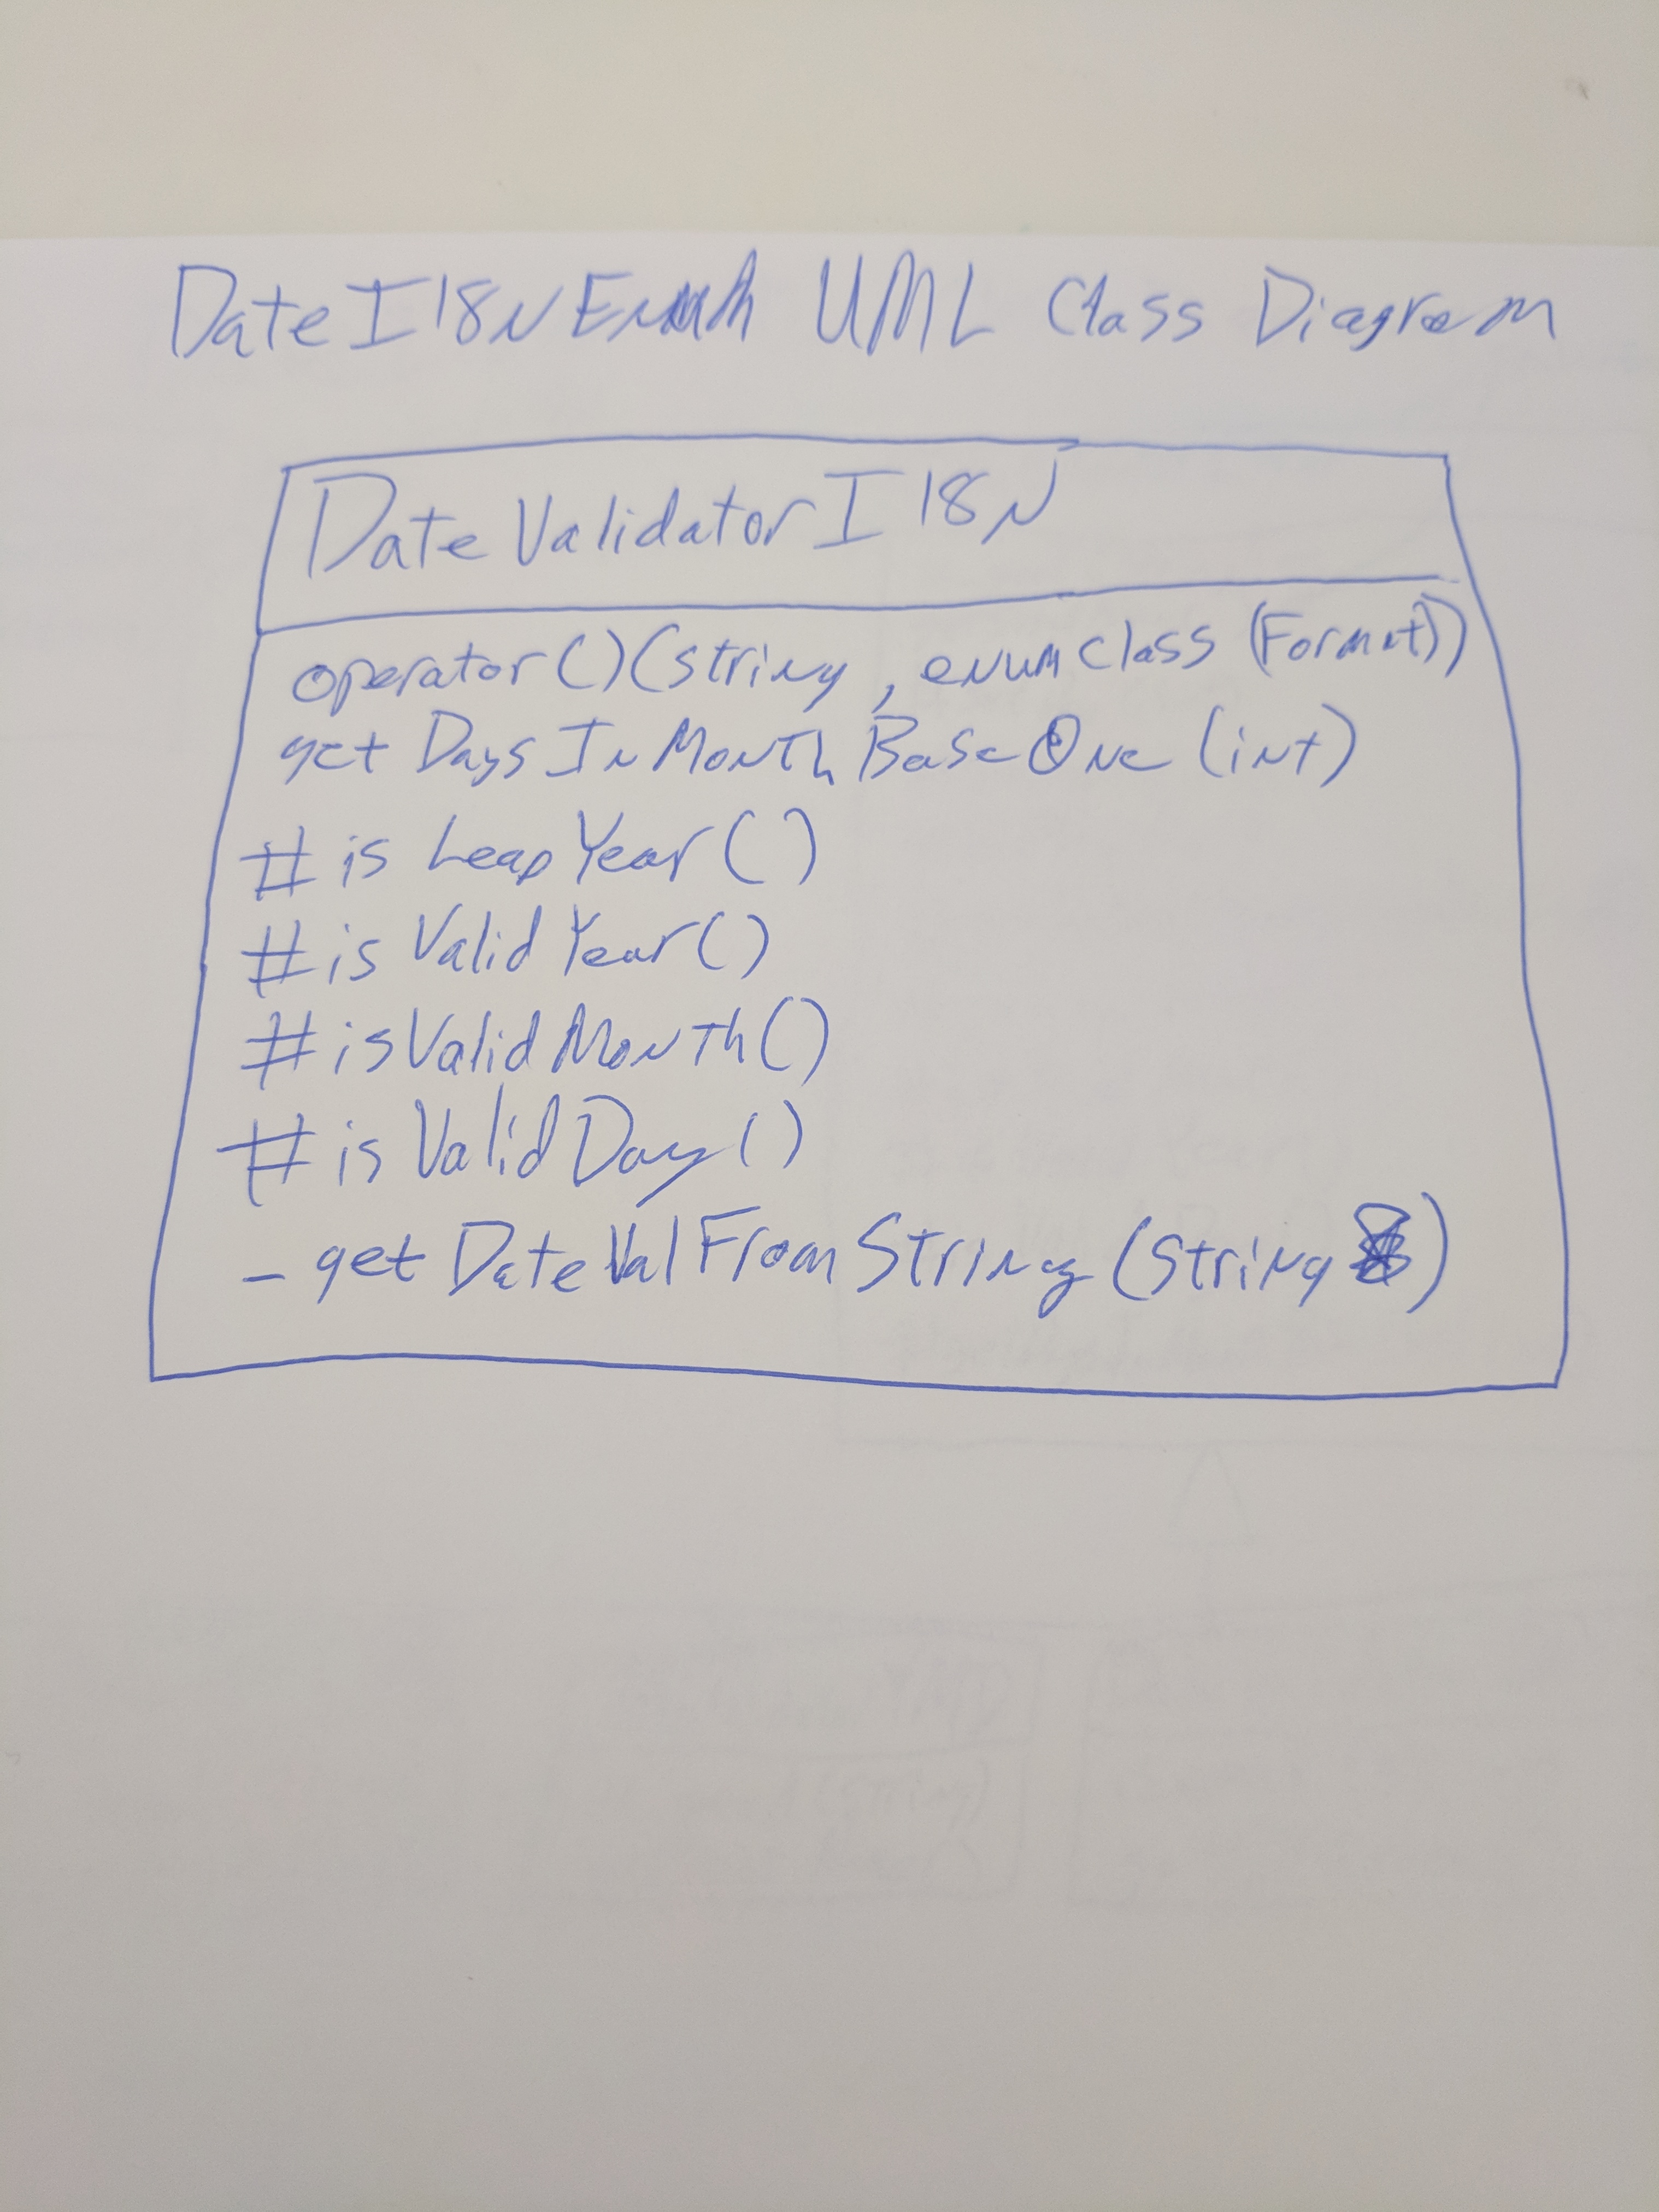 DateI18NEnum UML Class Diagram
DateValidatorI18N
operator()(string, enum class (Format))
getDaysInMonthBaseOne (int)
# isLeapYear()
# isValidYear()
# isValidMonth()
# isValidDay()
- getDateValFromString (string)